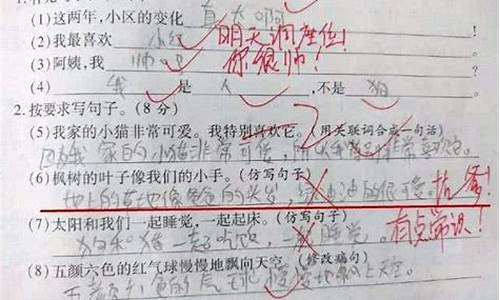 (1)这两年,小区的变化 真大啊
(2)我最喜欢 小红 明天调座位!
(3)阿姨,我 帅吧 你很帅!
(4) 我 是 人 ,不是 狗
2.按要求写句子。(8 分)
(5)我家的小猫非常可爱。我特别喜欢它。(用关联词合成一句话)
因为我家的小猫非常可爱,所以我非常喜欢它。
(6)枫树的叶子像我们的小手。(仿写句子)
地上的草地像爸爸的头发,绿油油的很可爱。
(7)太阳和我们一起睡觉,一起起床。(仿写句子)
一起吃饭,一起睡觉。 有点常识!
(8)五颜六色的红气球慢慢地飘向天空。(修改病句)
五颜六色的气球慢慢地飘上天空。